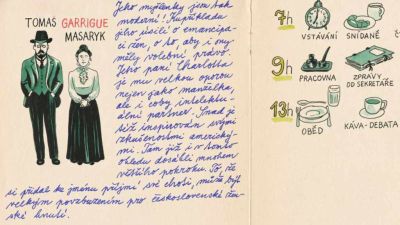 TOMAS GARRIGUE
MASARYK
Jeho myšlenky jsou tak
moderní! Kupříkladu
jeho úsilí o emancipa-
ci žen, o to, aby i ony
měly volební právo.
Jeho paní Charlotta
je mu velkou oporou
nejen jako manželka,
ale i coby intelektu-
ální partner. Snad je
též inspirován svými
zkušenostmi americký-
mi. Tam již v tomto
ohledu dosáhli mnohem
většího pokroku. To, že
si přidal ke jménu příjmí své choti, může být
velkým povzbuzením pro československé žen-
ské hnutí.
7h
VSTÁVÁNÍ
SNÍDANĚ
9h
PRACOVNA
ZPRÁVY
OD SEKRETÁŘE
13h
OBĚD
KÁVA-DEBATA